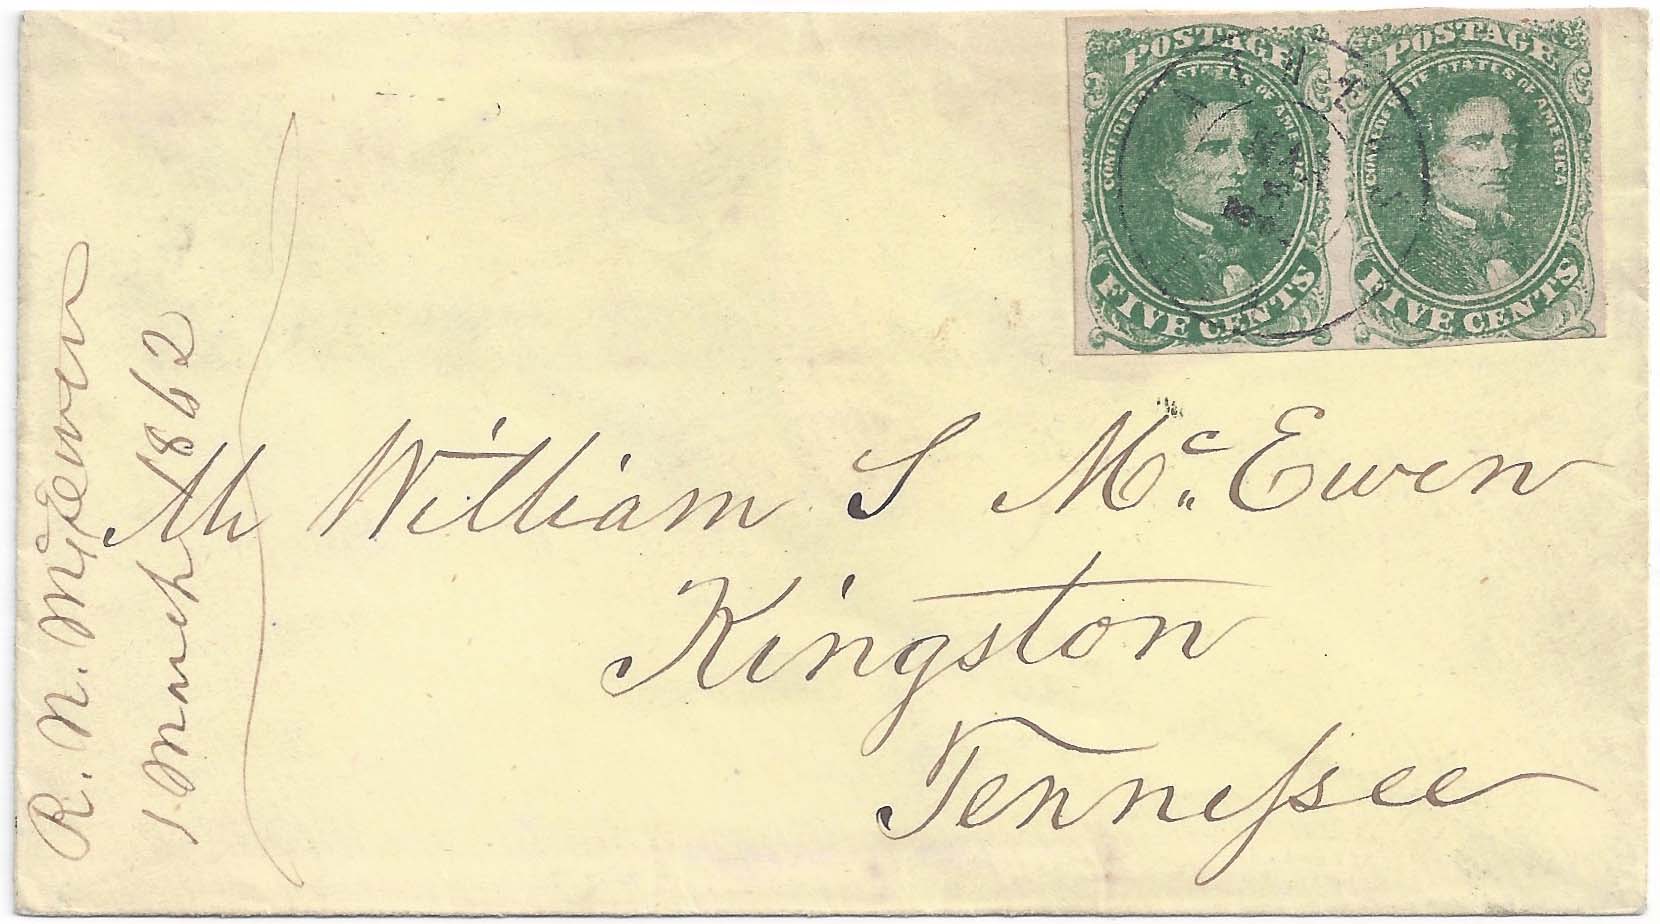 POSTAGE
CONFEDERATE STATES OF AMERICA
FIVE CENTS
POSTAGE
CONFEDERATE STATES OF AMERICA
FIVE CENTS
R. N. McEwen
1 March 1862
Mr William S McEwen
Kingston
Tennessee